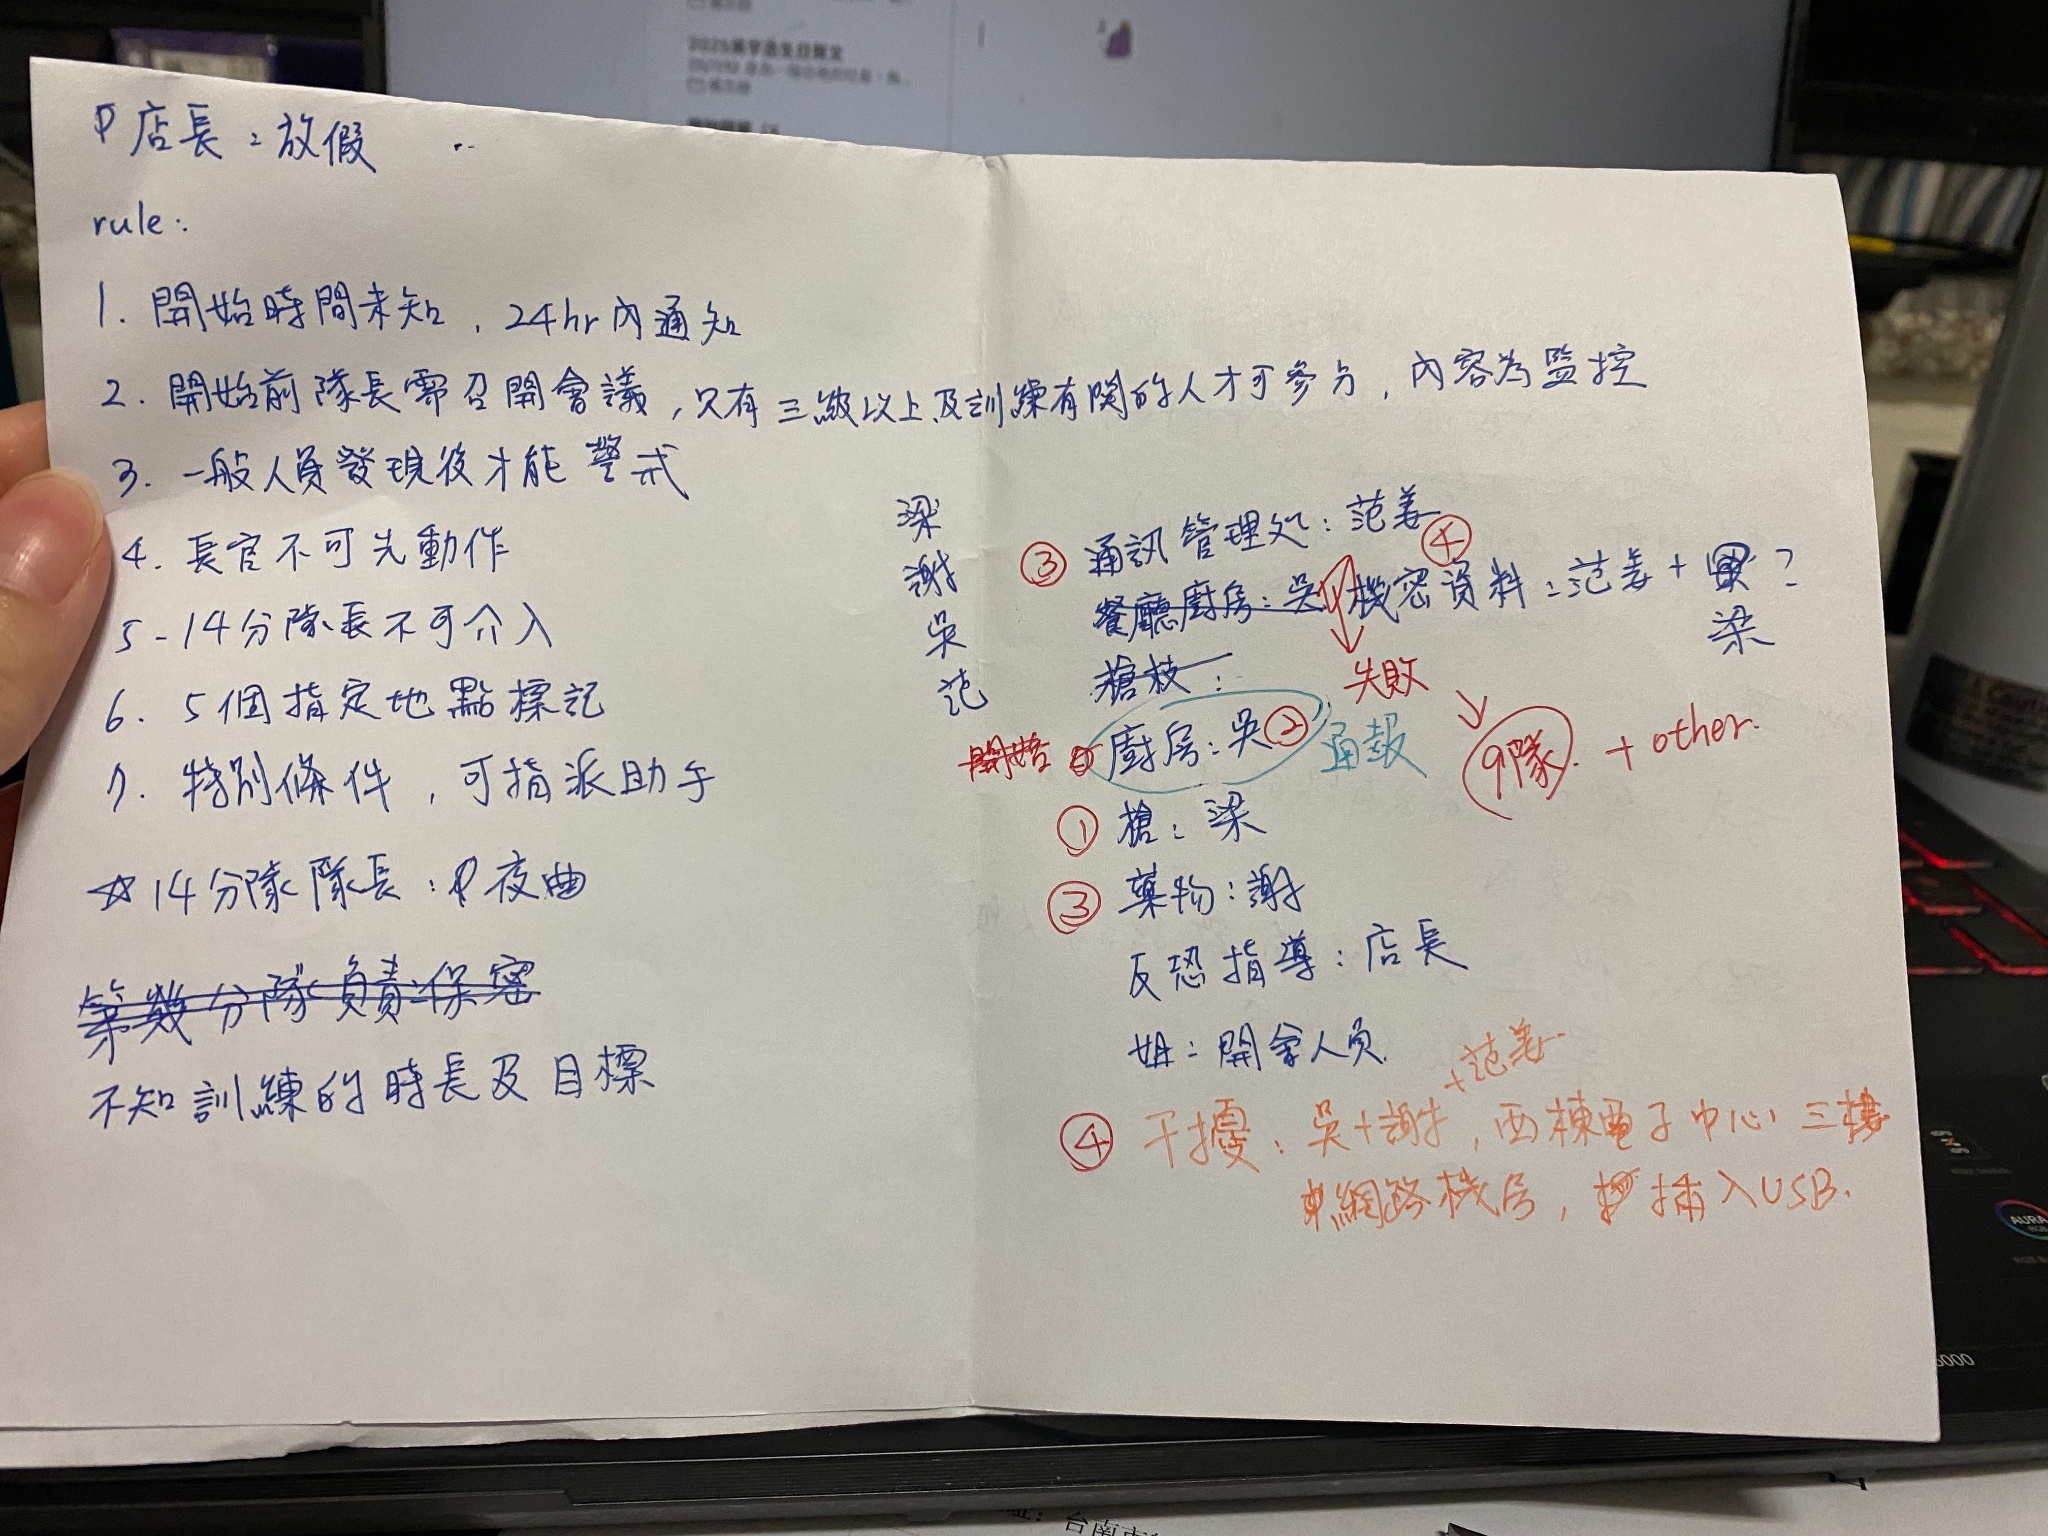 店長：放假
rule：
1. 開始時間未知，24hr內通知
2. 開始前隊長需召開會議，只有三級以上及訓練有關的人才可參与，內容為監控
3. 一般人員發現後才能警戒
4. 長官不可先動作
5-14分隊長不可介入
6. 5個指定地點標記
7. 特別條件，可指派助手
☆14分隊隊長：夜曲
第幾分隊負責保密
不知訓練的時長及目標
梁
謝
吳
范
③ 通訊管理処：范姜
餐廳廚房：吳
④ 機密資料：范姜+吳？
梁
槍枝：
失敗
開始 廚房：吳②
通報
9隊 + other.
① 槍：梁
③ 藥物：謝
反恐指導：店長
姐：開會人員
+范姜
④ 干擾：吳+謝，西棟電子中心三樓
網路機房，插入USB.
AURA